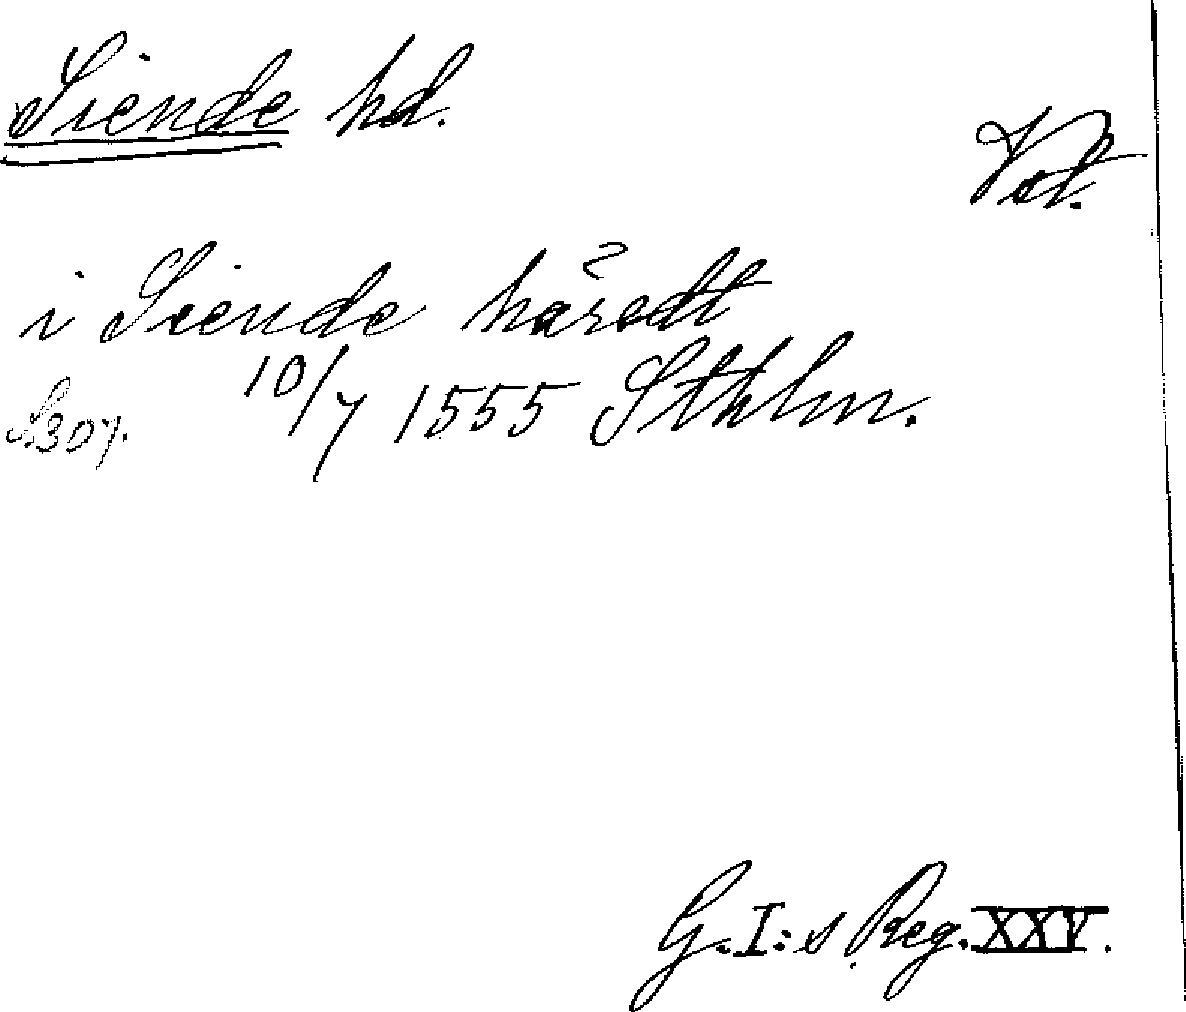 Siende hd.
Vstm.
i Siende häredt
S. 307. 10/7 1555 Sthlm.
G. I:s Reg. XXV.